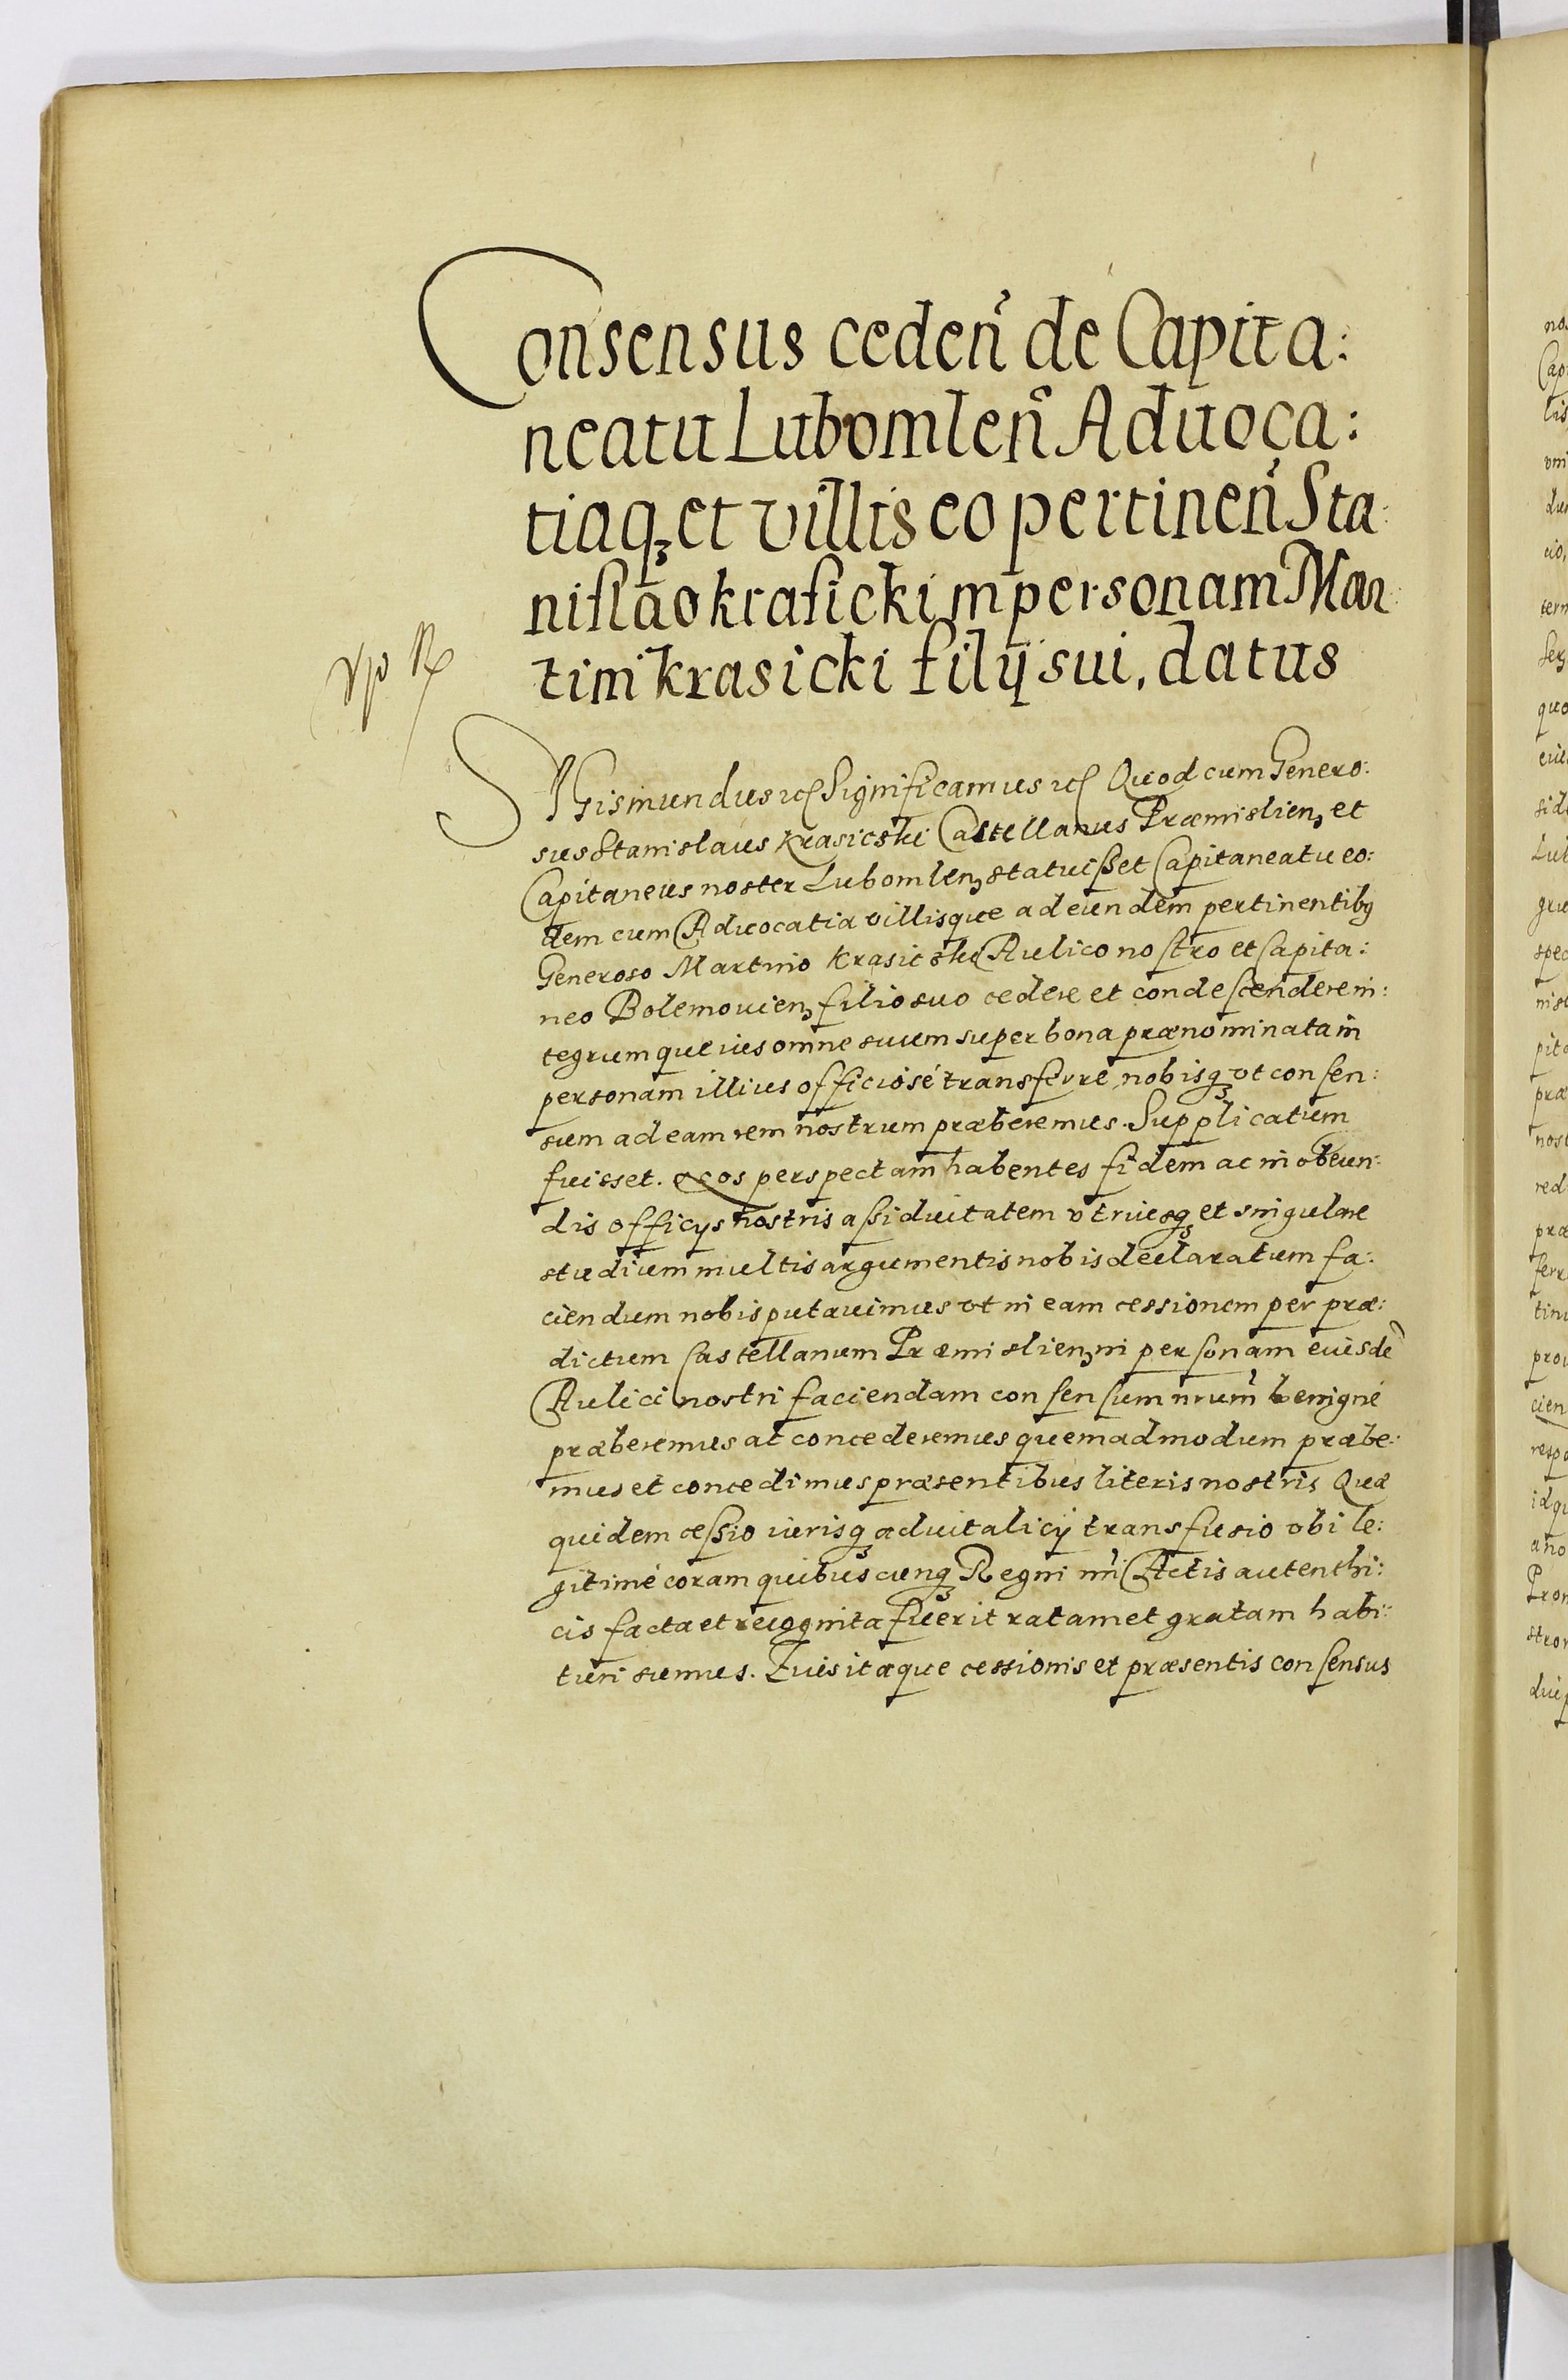 Consensus ceden̄ de Capita:
neatu Lubomlen̄ Aduoca:
tiaqꝫ et villis eo pertinen̄ Sta:
nislao kraſicki in personam Mar:
tini krasicki filij sui, datus
SIGismundus ꝛcꝭ Significamus ꝛcꝭ Quod cum Genero:
sus Stanislaus Krasicski Castellanus Præmislienꝫ et
Capitaneus noster Lubomlenꝫ statuiſset Capitaneatu eo:
dem cum Aduocatia villisque ad eundem pertinentibꝫ
Generoso Martino Krasicski Aulico noſtro et Capita:
neo Bolemouienꝫ filio suo cedere et condeſcendere in:
tegrumque ius omne suum super bona prænominata in
personam illius officiosé transferre, nobisqꝫ vt conſen:
sum ad eam rem nostrum præberemus. Supplicatum
fuisset. Nos perspectam habentes fidem ac in obeun:
dis officijs nostris aſsiduitatem vtriusqꝫ et singulare
studium multis argumentis nobis declaratum fa:
ciendum nobis putauimus vt in eam cessionem per præ:
dictum Castellanum Præmislienꝫ in perſonam eiusdē
Aulici nostri faciendam conſenſum nrum̄ benigné
præberemus ac concederemus quemadmodum præbe:
mus et concedimus præsentibus literis nostris Quæ
quidem ceſsio iurisqꝫ aduitalicij transfusio vbi le:
gitimé coram quibuscunqꝫ Regni nr̄i Actis autenthi:
cis facta et recognita fuerit ratam et gratam habi:
turi sumus. Cuius itaque cessionis et præsentis conſensus